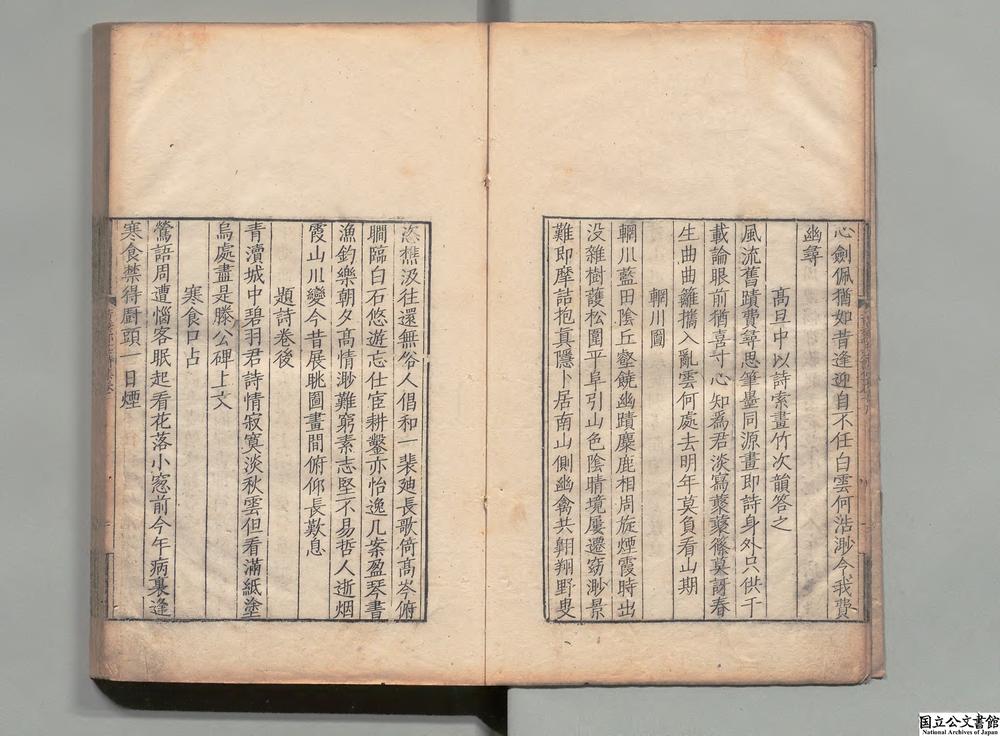 心劍佩猶如昔逢迎自不任白雲何浩渺令我費
幽尋
高旦中以詩索畫竹次韻答之
風流舊蹟費尋思筆墨同源畫即詩身外只供千
載論眼前猶喜寸心知為君淡寫蘷蘷篠莫訝春
生曲曲籬攜入亂雲何處去明年莫負看山期
輞川圖
輞川藍田陰丘壑饒幽蹟麋鹿相周旋煙霞時出
没雜樹護松圍平阜引山色陰晴境屢遷窈渺景
難即摩詰抱真隱卜居南山側幽禽共翱翔野叟
恣樵汲往還無俗人倡和一裴廸長歌倚高岑俯
瞯臨白石悠遊忘仕宦耕鑿亦怡逸几案盈琴書
漁釣樂朝夕高情渺難窮素志堅不易哲人逝烟
霞山川變今昔展眺圖畫間俯仰長歎息
題詩卷後
青瀆城中碧羽君詩情寂寞淡秋雲但看滿紙塗
烏處盡是滕公碑上文
寒食口占
鶯語周遭惱客眠起看花落小窓前今年病裏逢
寒食禁得厨頭一日煙
国立公文書館
National Archives of Japan